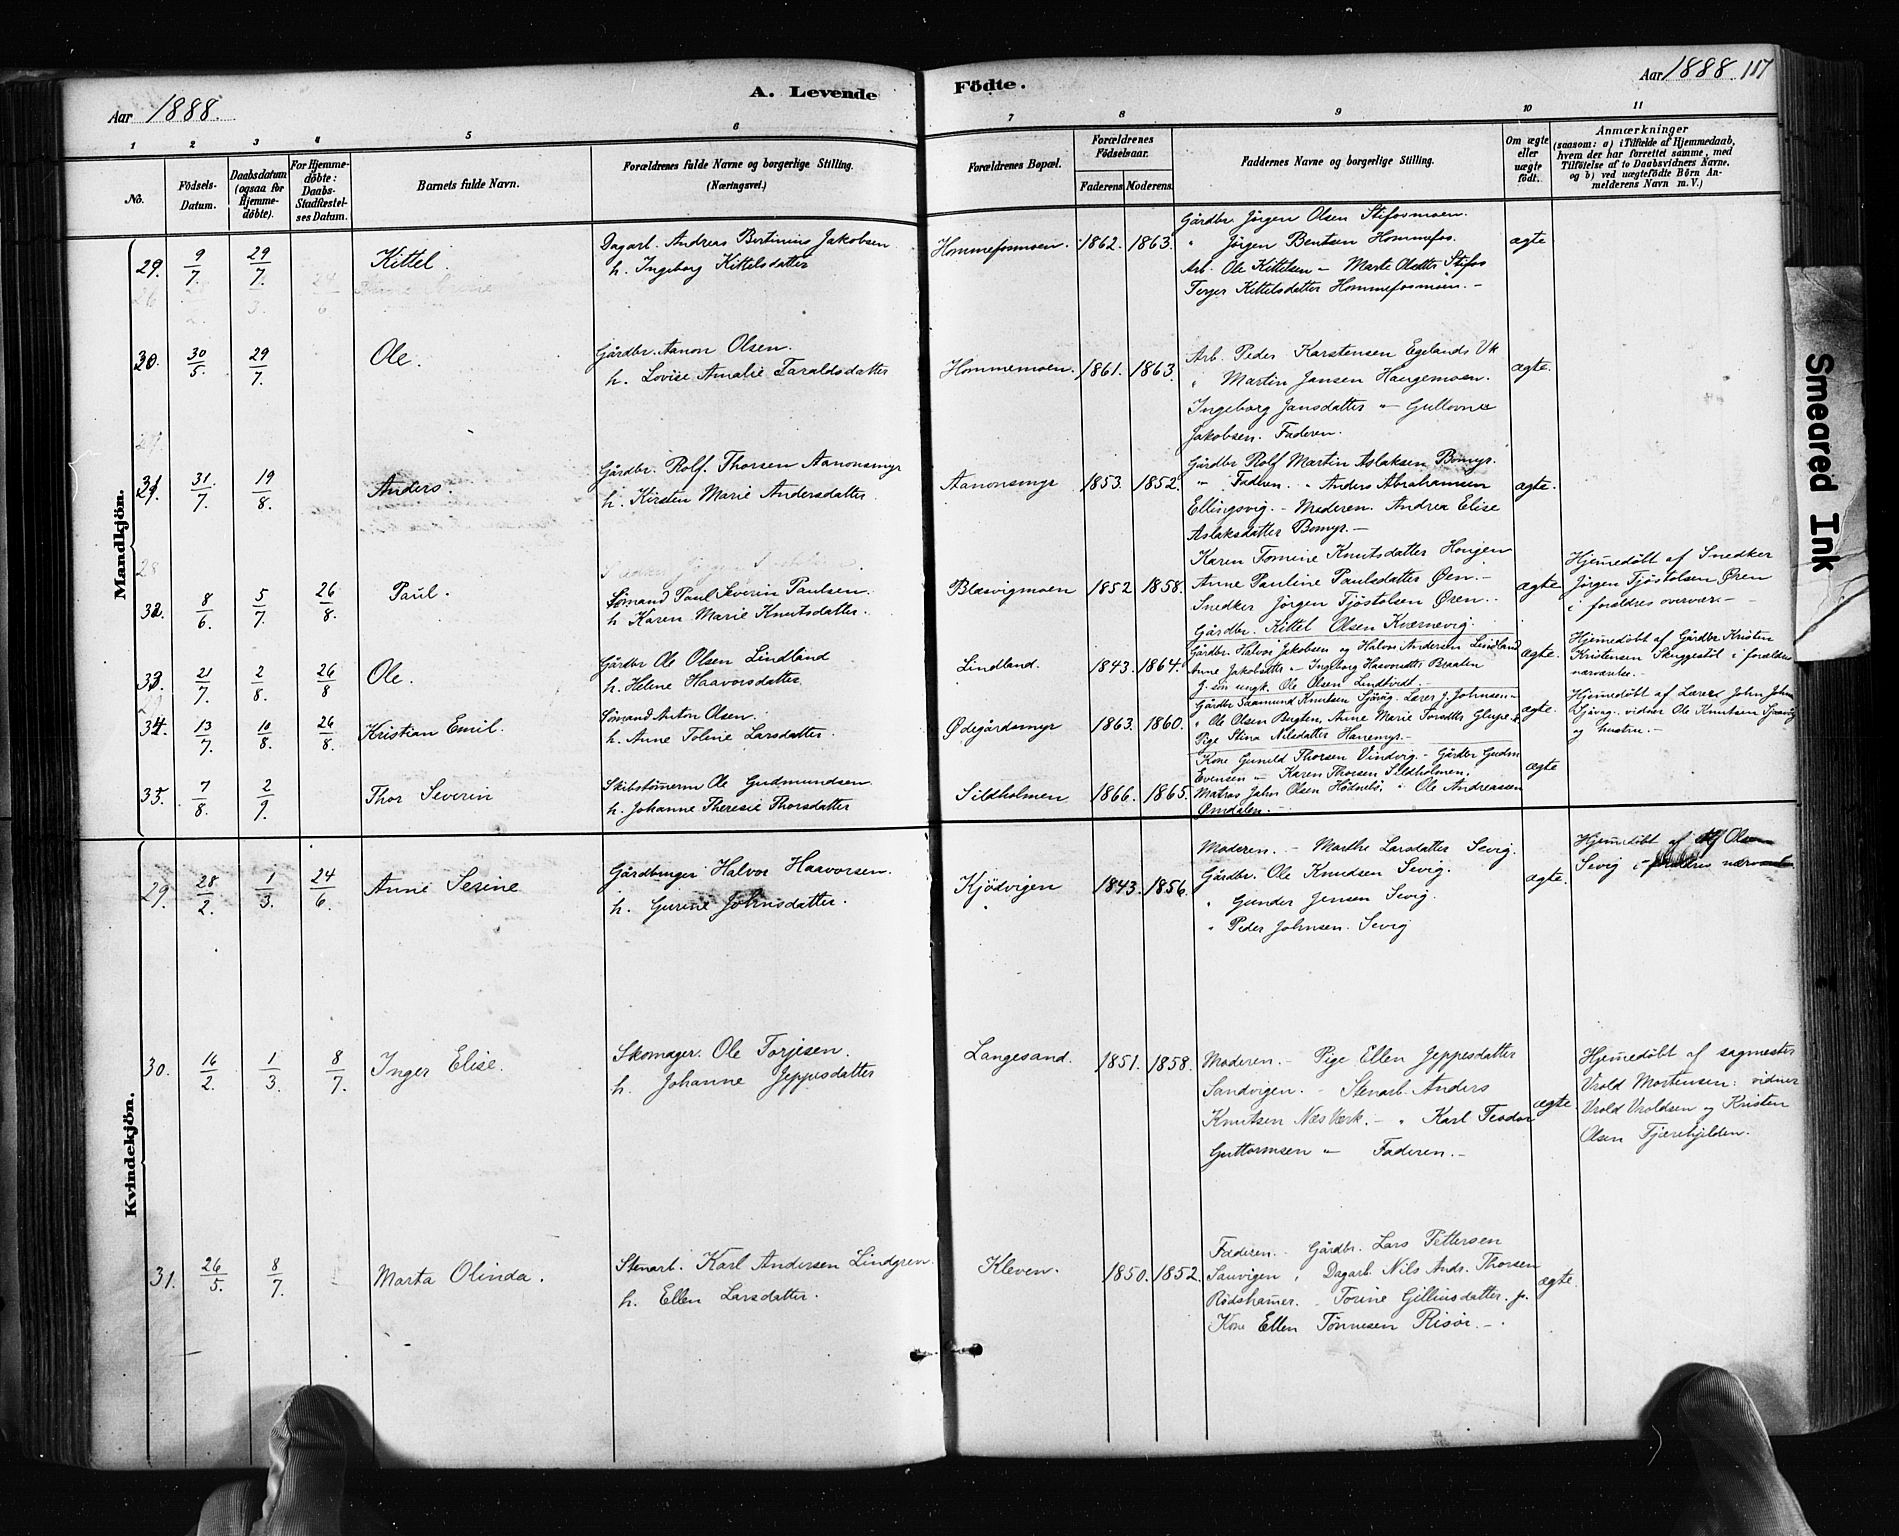 Aar 1888.
A. Levende
Födte.
Aar 1888. 117
1 2 3 4 5 6 7 8 9 10 11
No.
Födsels-Datum.
Daabsdatum (ogsaa for Hjemme-döbte).
For Hjemme-döbte: Daabs-Stadfæstel-ses Datum.
Barnets fulde Navn.
Forældrenes fulde Navne og borgerlige Stilling.
(Næringsvei.)
Forældrenes Bopæl.
Forældrenes Födselsaar.
Faderens Moderens.
Faddernes Navne og borgerlige Stilling.
Om ægte eller uægte födt.
Anmærkninger
(saasom: a) i Tilfælde af Hjemmedaab,
hvem der har forrettet samme, med
Tilföielse af to Daabsvidners Navne,
og b) ved uægtefödte Börn An-
melderens Navn m. V.)
Mandkjön.
29. 9/7. 29/7. Kittel.
Dagarb. Andreas Bertinius Jakobsen
h. Ingeborg Kittelsdatter
Hommefosmoen. 1862. 1863.
Gårdbr. Jörgen Olsen Stifosmoen.
" Jörgen Bentsen Hommefos.
Arb. Ole Kittelsen – Marte Olsdtr Stifos
Terjer Kittelsdatter Hommefosmoen. –
ægte
30. 30/5. 29/7. Ole.
Gårdbr. Aanon Olsen.
h. Lovise Amalie Taraldsdatter
Hommemoen. 1861. 1863.
Arb. Peder Karstensen Egelands Vk
" Martin Jansen Haugemoen.
Ingeborg Jansdatter " Gullovne
Jakobsen. Faderen.
ægte.
31. 31/7. 19/8. Anders.
Gårdbr. Rolf Thorsen Aanonsmyr
h. Kirsten Marie Andersdatter.
Aanonsmyr 1853. 1852.
Gårdbr Rolf Martin Aslaksen Bomyr.
" Faderen. " Anders Abrahamsen
Ellingsvig. – Moderen. Andrea Elise
Aslaksdatter Bomyr. –
ægte.
32. 8/6. 5/7. 26/8. Paul.
Sömand Paul Severin Paulsen.
h. Karen Marie Knutsdatter.
Blæsvigmoen 1852 1858.
Karen Tomine Knutsdatter Hougen
Anne Pauline Paulsdatter Øen. –
Snedker Jörgen Tjöstolsen Øren. –
Gårdbr. Kittel Olsen Kværnevig.
ægte
Hjemmedöbt af Snedker
Jörgen Tjöstolsen Øren
i foraldres overvær. –
33. 21/7. 2/8. 26/8 Ole.
Gårdbr Ole Olsen Lindland
h. Helene Haavorsdatter
Lindland. 1843. 1864.
Gårdbr. Halvor Jakobsen og Halvor Andersen Lindland
Anne Jakobsdtr – Ingeborg Haavorsdtr Braaten
ungk. Ole Olsen Lindtvedt. –
ægte.
Hjemmedöbt af Gårdbr Kristen
Kristensen Skuggestöl i forældres
nærværelse. –
34. 13/7. 10/8. 26/8. Kristian Emil.
Sömand Anton Olsen.
h. Anne Toline Larsdatter.
Ødegårdsmyr 1863. 1860.
Gårdbr Saamund Knudsen Sjåvåg. Lærer J. Johnsen –
" Ole Olsen Bugten, Anne Marie Torsdtr Glupe
Pige Stina Nilsdatter Hanemyr. –
ægte.
Hjemmedöbt af Lærer John Johns
Sjåvåg. vidner Ole Knutsen Sjaavåg
og hustru. –
35. 7/8. 2/9. Thor Severin
Skibstömerm Ole Gudmundsen
h. Johanne Theresie Thorsdatter
Sildholmen 1866. 1865.
Kone Gunild Thorsen Vindvig. – Gårdbr Gudm
Evensen – Karen Thorsen Sildholmen.
Matros John Olsen Hödnebö. " Ole Andreassen
Omdalen. –
ægte
Kvindekjön.
29. 28/2. 1/3. 24/6. Anne Serine
Gårdbruger Halvor Haavorsen.
h. Gurine Johnsdatter.
Kjödvigen 1843. 1856.
Moderen. – Marthe Larsdatter Sevig.
Gårdbr. Ole Knudsen Sevig.
" Gunder Jensen Sevig.
" Peder Johnsen. Sevig
ægte.
Hjemmedöbt af Olsen
Sevig i nærværelse
30. 16/2. 1/3. 8/7. Inger Elise.
Skomager. Ole Torjesen.
h. Johanne Jeppesdatter
Langesand. 1851. 1858.
Moderen. – Pige Ellen Jeppesdatter
Sandvigen. – Stenarb. Anders
Knutsen Næs Værk. – " Karl Teodor
Guttormsen " Faderen. –
ægte.
Hjemmedöbt af sagmester
Vrold Mortensen: vidner
Vrold Vroldsen og Kristen
Olsen Tjærehjelden.
31. 26/5. 8/7. – Marta Olinda.
Stenarb. Karl Andersen Lindgren
h. Ellen Larsdatter.
Kleven. 1850. 1852.
Faderen. – Gårdbr. Lars Pettersen
Sauvigen " Dagarb. Nils Andr. Thorsen
Rödshamer. – Torine Gilliusdatter. p.
Kone Ellen Tönnesen Risör. –
ægte.
Smeared Ink